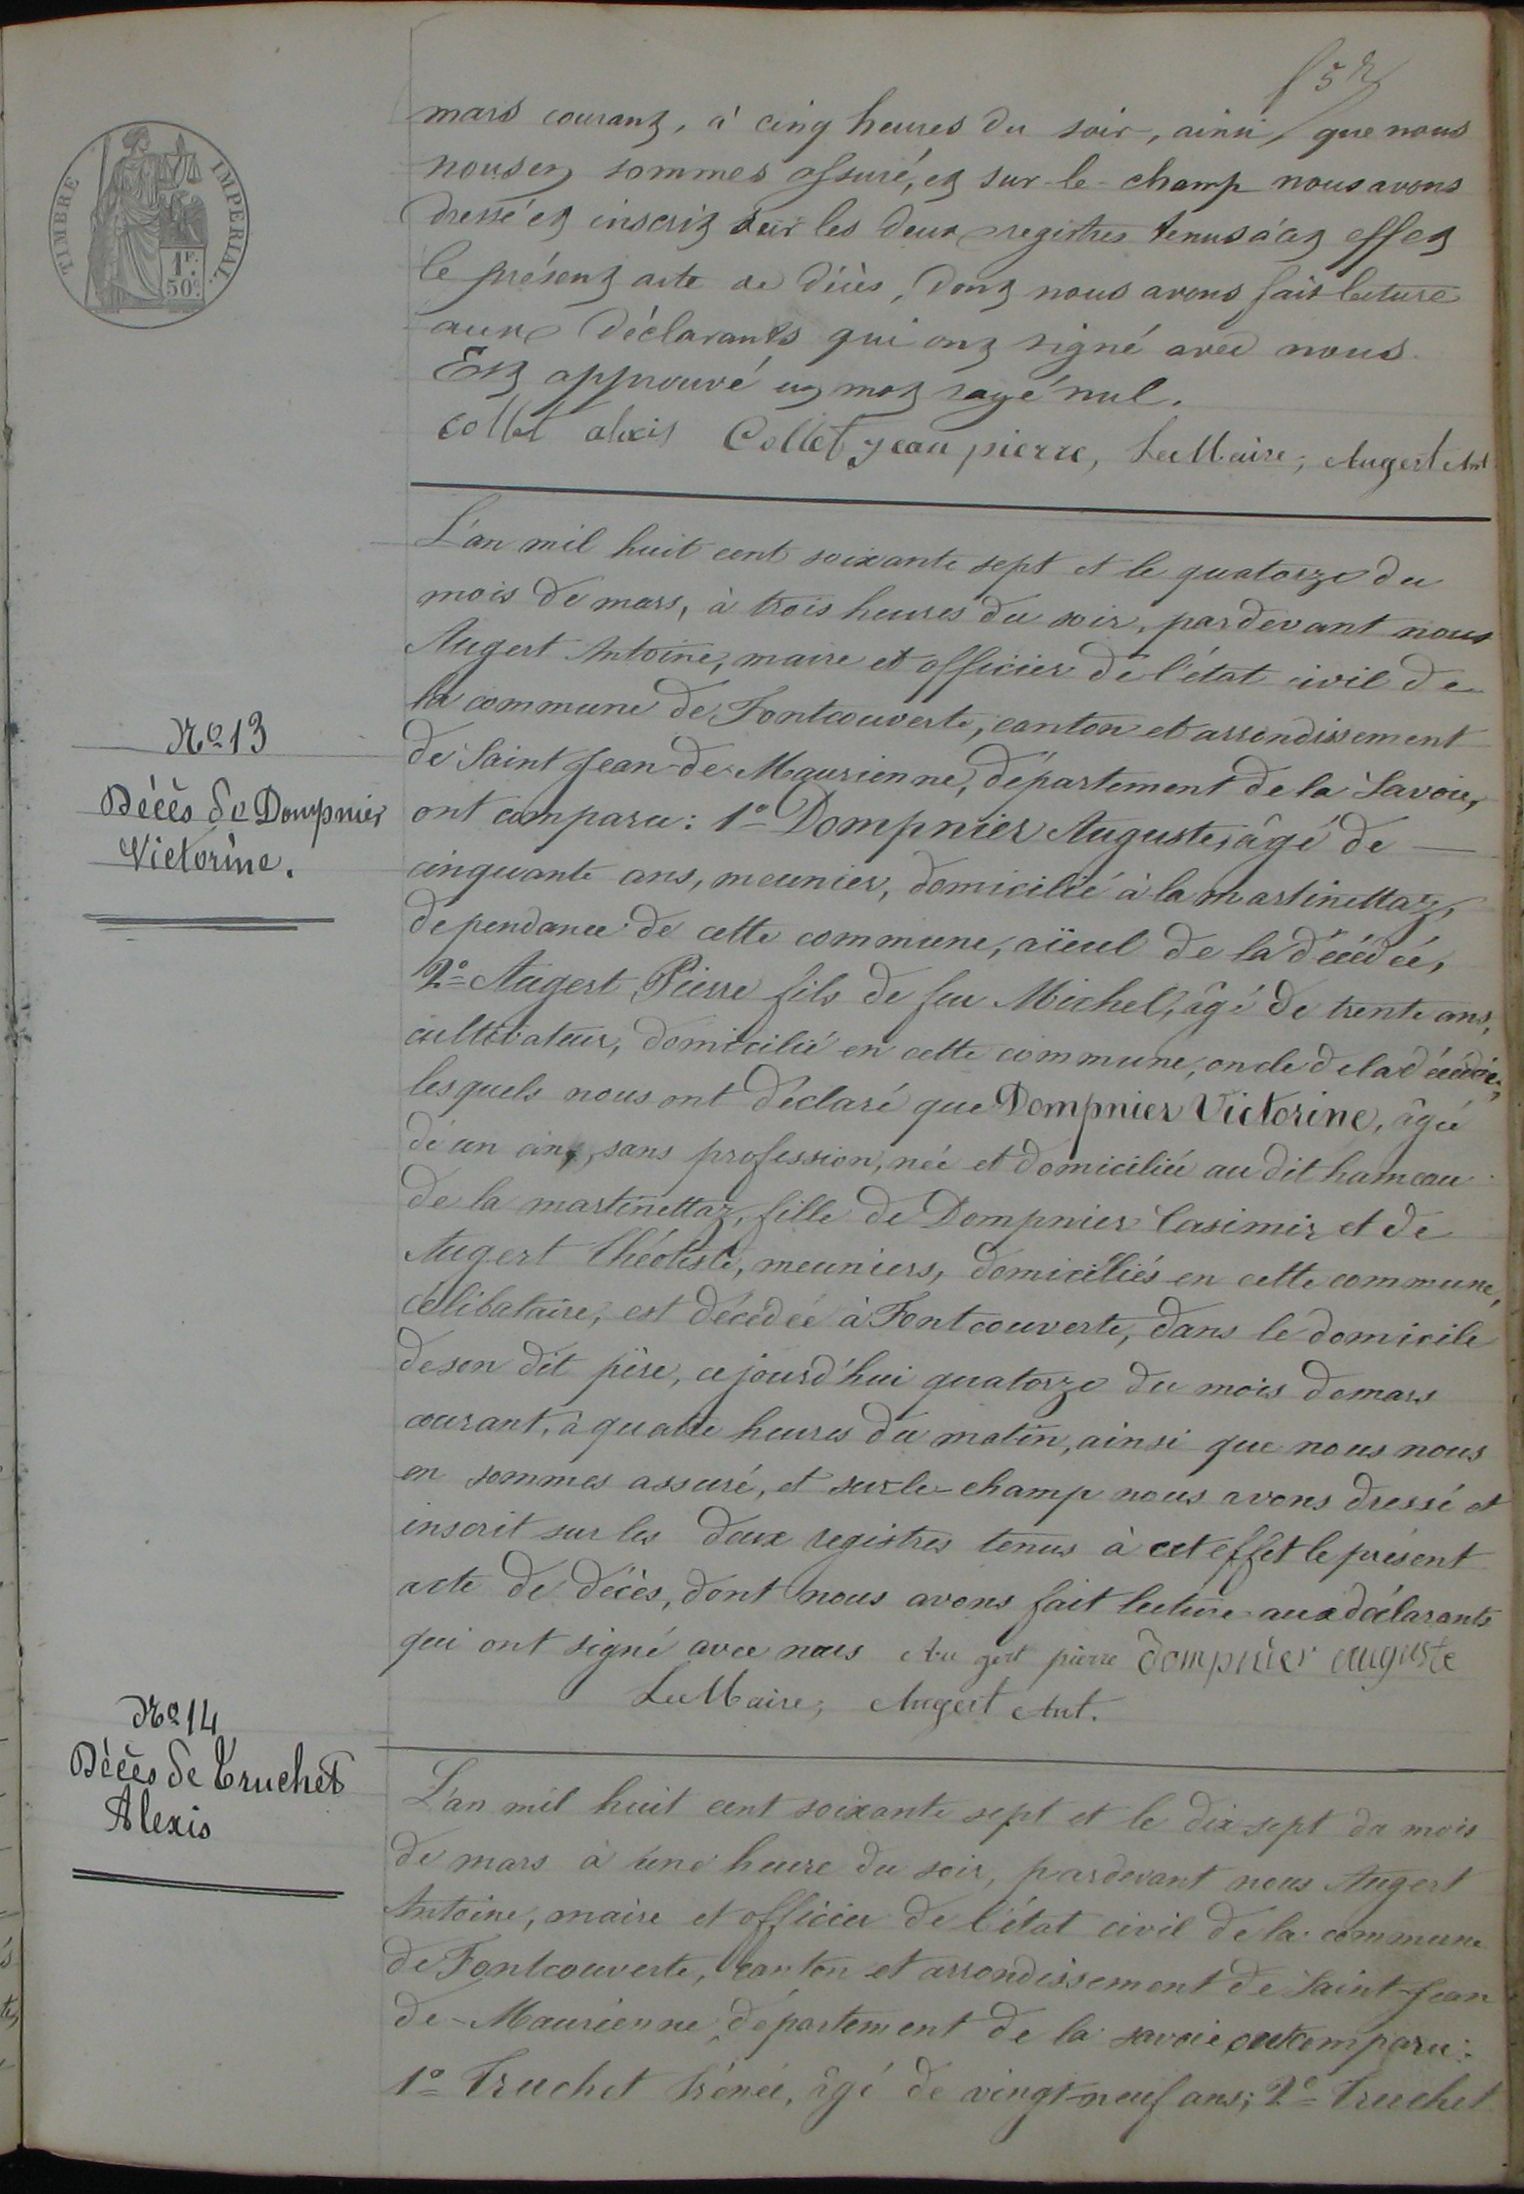 f 5 r
TIMBRE IMPERIAL.
1F. 50c.
mars courant, à cinq heures du soir, ainsi, que nous
nous en sommes assuré, et sur-le-champ nous avons
dressé et inscrit sur les deux registres tenus à cet effet
le présent acte de décès, dont nous avons fait lecture
aux déclarants qui ont signé avec nous.
Est approuvé un mot rayé nul.
collet alexis Collet jean pierre, Le Maire, Augert Ant
L'an mil huit cent soixante sept et le quatorze du
mois de mars, à trois heures du soir, pardevant nous
Augert Antoine, maire et officier de l'état civil de
la commune de Fontcouverte, canton et arrondissement
de Saint Jean-de-Maurienne, département de la Savoie,
ont comparu: 1º Dompnier Auguste, âgé de
cinquante ans, meunier, domicilié à la martinettaz,
dependance de cette commune, aïeul de la décédée,
2º Augert Pierre fils de feu Michel, âgé de trente ans,
cultivateur, domicilié en cette commune, oncle de la décédée,
lesquels nous ont déclaré que Dompnier Victorine, âgée
de un an, sans profession, née et domiciliée au dit hameau
de la martinettaz, fille de Dompnier Casimir et de
Augert Théotiste, meuniers, domiciliés en cette commune,
célibataire, est décédée à Fontcouverte, dans le domicile
de son dit père, cejourd'hui quatorze du mois de mars
courant, à quatre heures du matin, ainsi que nous nous
en sommes assuré, et sur le-champ nous avons dressé et
inscrit sur les deux registres tenus à cet effet le présent
acte de décès, dont nous avons fait lecture aux déclarants
qui ont signé avec nous Augert pierre dompnier auguste
Le Maire, Augert Ant.
Nº 13
Décès de Dompnier
Victorine.
Nº 14
Décès de Truchet
Alexis
L'an mil huit cent soixante sept et le dix-sept du mois
de mars à une heure du soir, pardevant nous Augert
Antoine, maire et officier de l'état civil de la commune
de Fontcouverte, canton et arrondissement de Saint-Jean
de-Maurienne, département de la savoie ont comparu:
1º Truchet Irénée, âgé de vingt-neuf ans; 2º Truchet